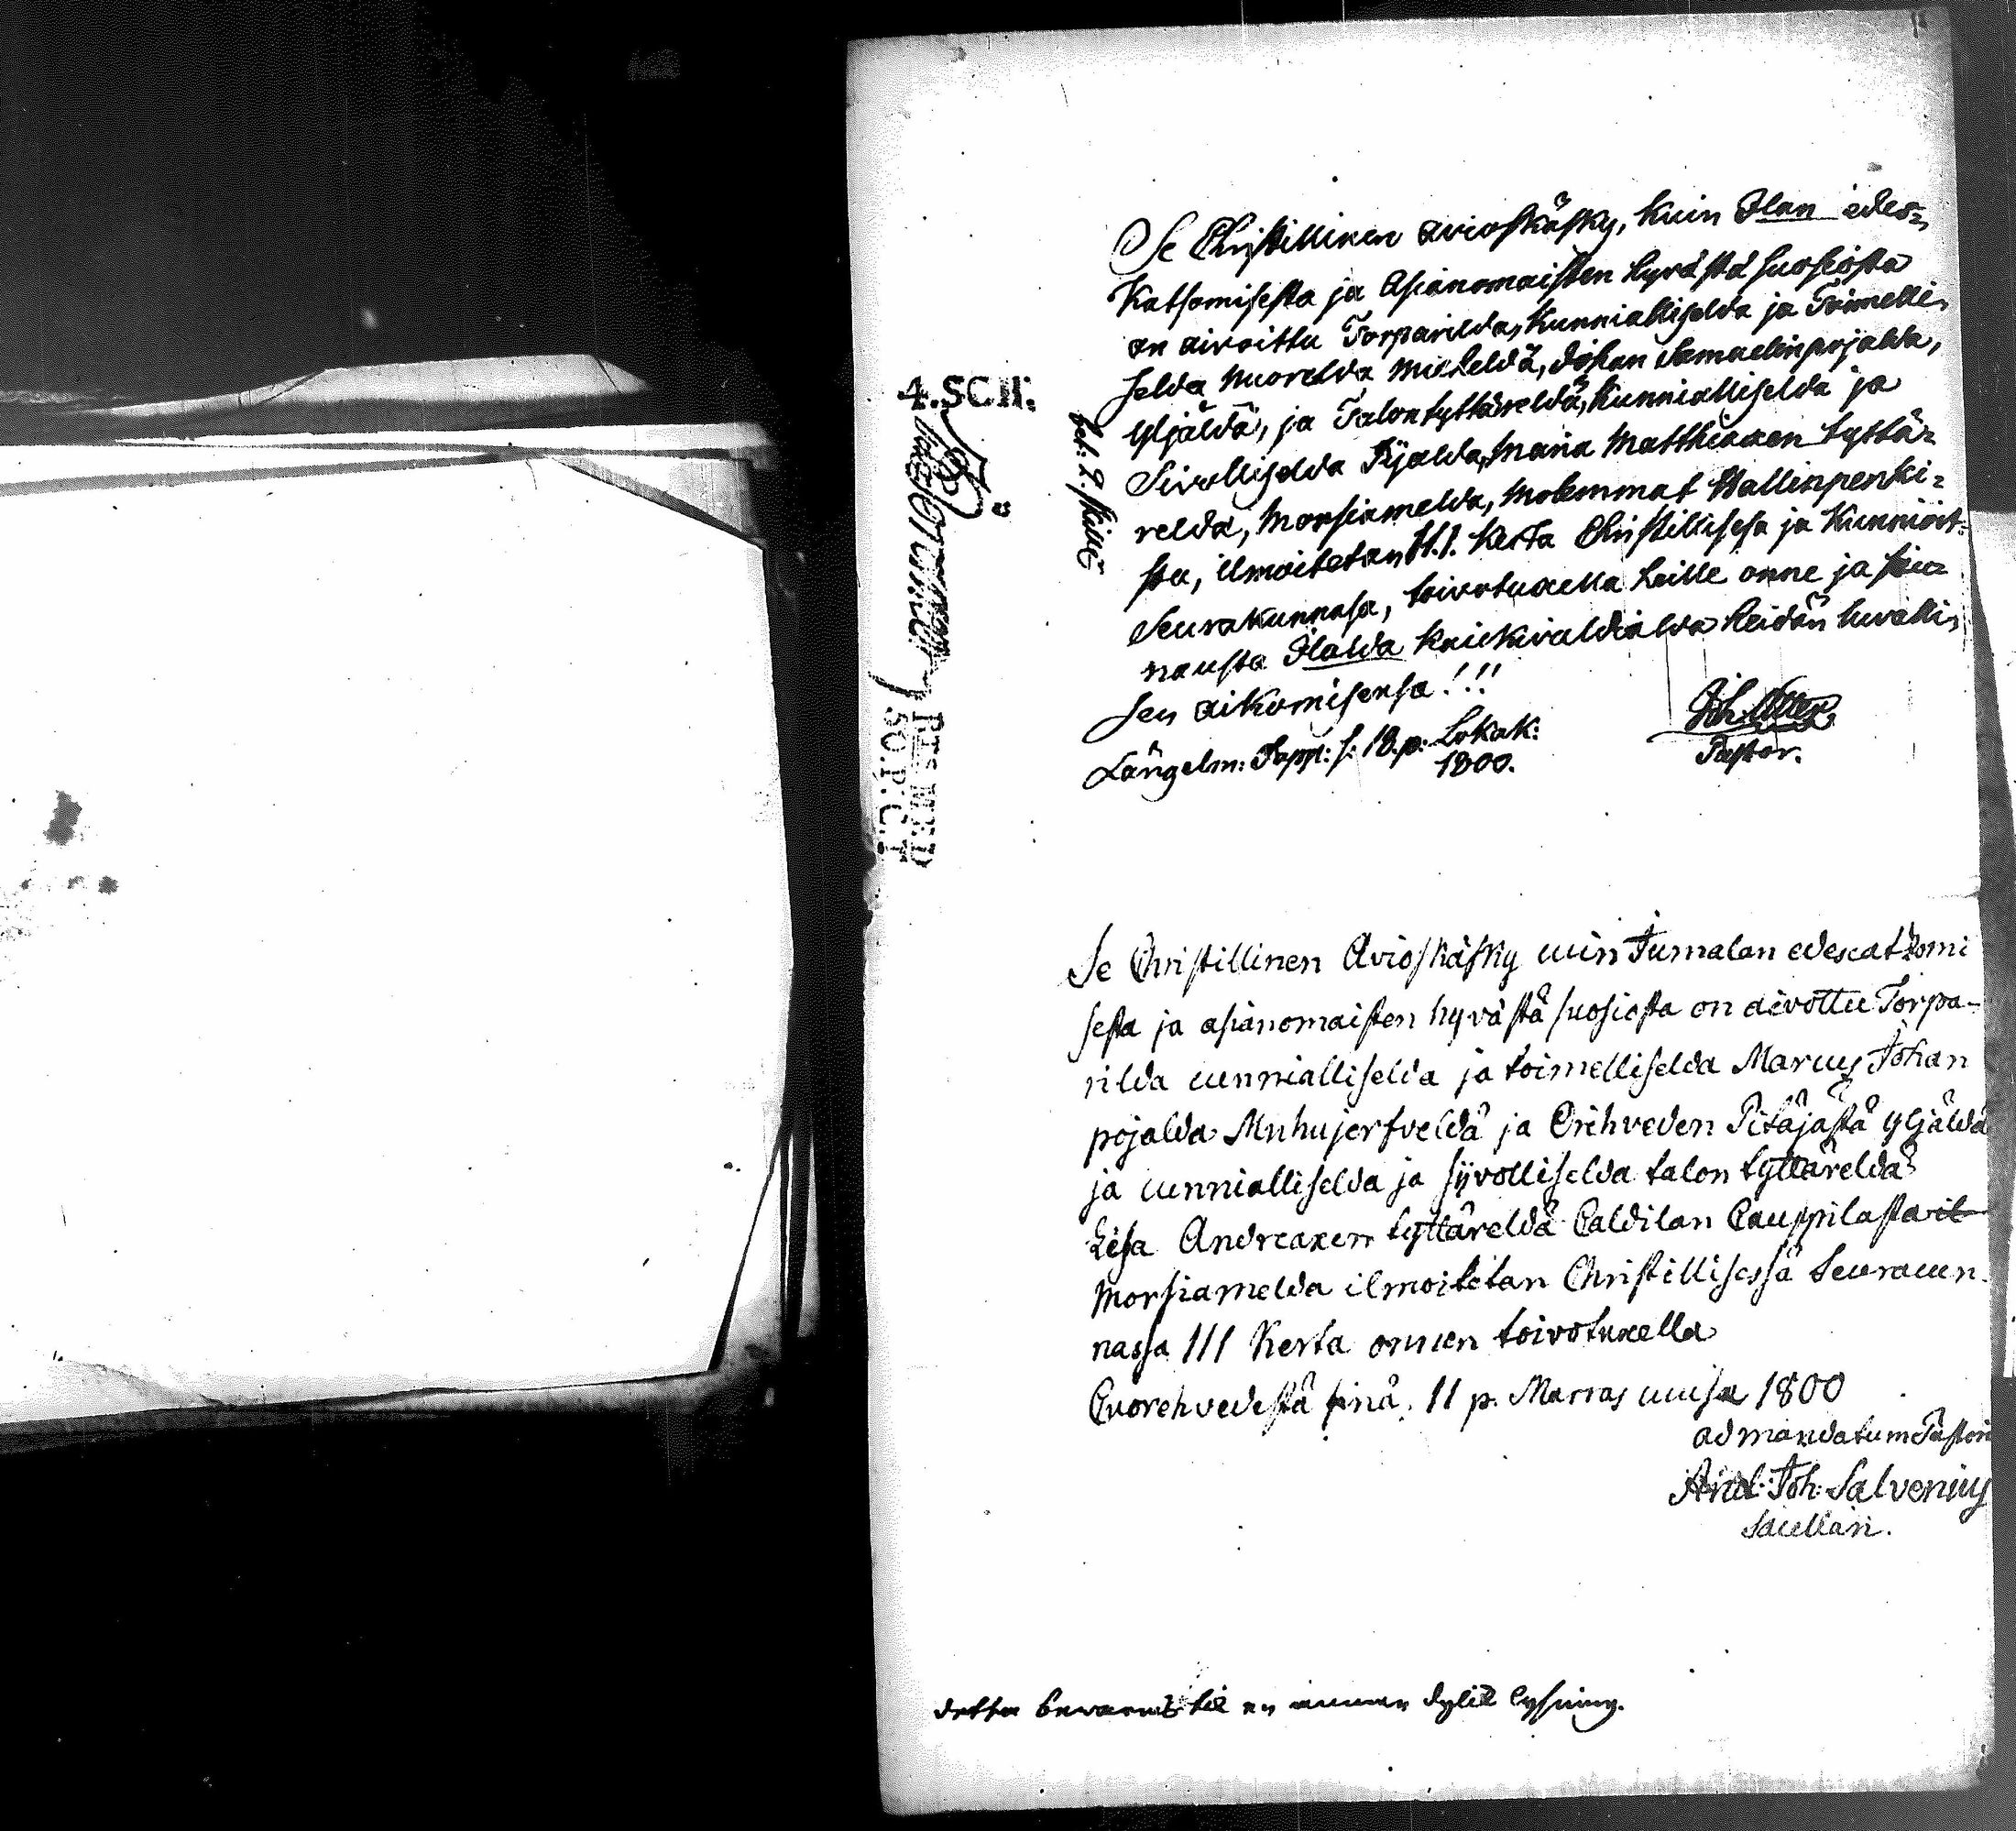 Se Christillinen avioskäsky, kuin Jlan edes=
katsomisesta ja Asianomaisten hyvästä suosiosta
on aivoittu Torparilda, kunnialliselda ja Toimelli=
selda nuorelda mieheldä, Johan Samuelinpojalda,
Yljäldä, ja Talontyttäreldä, kunnialliselda ja
Sivolliselda Pijalda, Maria Matthiaxen tyttä=
relda, Morsiamelda, molemmat Hallinpenki=
stä, ilmoitetan kerta Christillisesä ja kunnioit:
Seurakunnasa, toivotuxella heille onne ja siu=
nausta Jlalda kaickivaldialda heidän luvalli=
sen aikomisensa!!!
Längelm: Pappl: s: 18. p: Lokak:
1800.
Pastor.
4.SCH:
bet: 2. skill
RTS MED
50.P.C.T
Se Christillinen Avioskäsky cuin Jumalan edescatzomi
sesta ja asianomaisten hyvästä suosiosta on aivottu Torpa-
rilda cunnialliselda ja toimelliselda Marcus Johan
pojalda Muhujerfveldä ja Orihveden Pitäjästä yljäldä
ja cunnialliselda ja sijvolliselda talon tyttäreldä
Lisa Andreaxen tyttäreldä Caldilan Cauppilasta il
Morsiamelda ilmoitetan Christillisessä Seuracun
nassa III Kerta onnen toivotuxella
Cuorehvedestä sinä. 11 p. Marras cuusa 1800
ad mandatum Pastori
And: Joh: Salvenius
Sacellan.
detta bevaras til en annan dylik lysning.